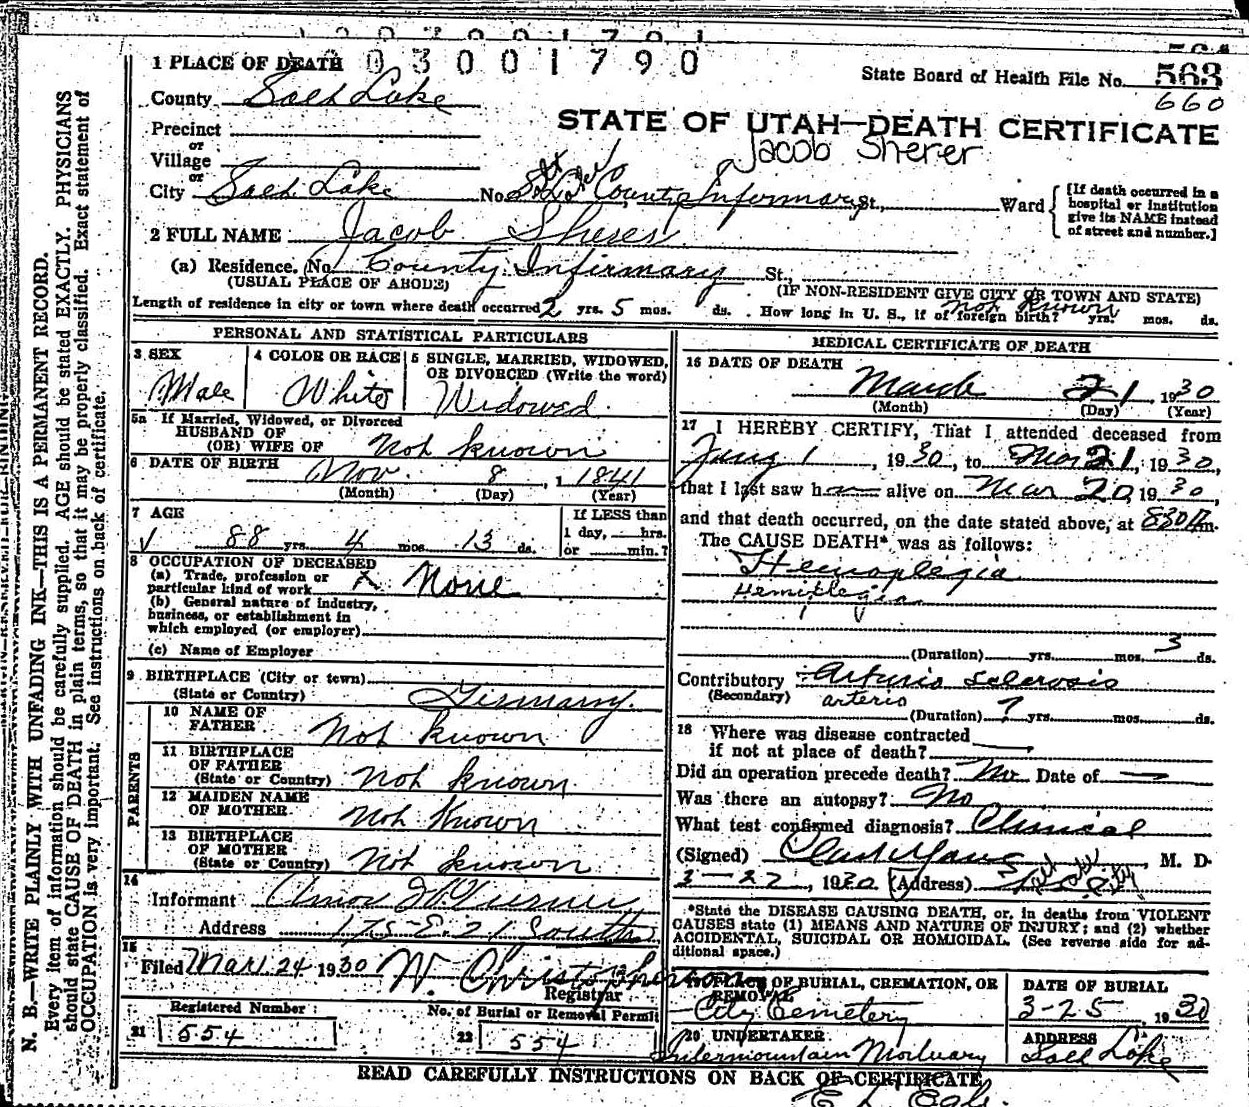 0 3 0 0 1 7 9 0
1 PLACE OF DEATH
State Board of Health File No. 563
660
County Salt Lake
STATE OF UTAH—DEATH CERTIFICATE
Jacob Sherer
Precinct
or
Village
or
City Salt Lake No. Salt Lake County Infirmary St., Ward
[If death occurred in a
hospital or institution
give its NAME instead
of street and number.]
2 FULL NAME Jacob Sherer
(a) Residence. No. County Infirmary St.
(USUAL PLACE OF ABODE) (IF NON-RESIDENT GIVE CITY OR TOWN AND STATE)
Length of residence in city or town where death occurred 2 yrs. 5 mos. ds. How long in U. S., if of foreign birth? not known yrs. mos. ds.
PERSONAL AND STATISTICAL PARTICULARS
3 SEX Male
4 COLOR OR RACE White
5 SINGLE, MARRIED, WIDOWED,
OR DIVORCED (Write the word)
Widowed
5a If Married, Widowed, or Divorced
HUSBAND OF
(OR) WIFE OF not known
6 DATE OF BIRTH Nov. 8, 1841
(Month) (Day) (Year)
7 AGE
88 yrs. 4 mos. 13 ds.
If LESS than
1 day, hrs.
or min.?
8 OCCUPATION OF DECEASED
(a) Trade, profession or
particular kind of work x None
(b) General nature of industry,
business, or establishment in
which employed (or employer)
(c) Name of Employer
9 BIRTHPLACE (City or town)
(State or Country) Germany.
PARENTS
10 NAME OF
FATHER Not known
11 BIRTHPLACE
OF FATHER
(State or Country) Not known
12 MAIDEN NAME
OF MOTHER Not Known
13 BIRTHPLACE
OF MOTHER
(State or Country) Not known
14
Informant Amos
Address 175 E. 21 South
15
Filed Mar 24 1930 W. Christopherson
Registrar
Registered Number
21 554
No. of Burial or Removal Permit
22 554
MEDICAL CERTIFICATE OF DEATH
16 DATE OF DEATH
March 21, 1930
(Month) (Day) (Year)
17 I HEREBY CERTIFY, That I attended deceased from
1, 1930, to Mar 21, 1930,
that I last saw h alive on Mar 20, 1930,
and that death occurred, on the date stated above, at 830 m.
The CAUSE DEATH* was as follows:
Hemoplegia
Hemiplegia
(Duration) yrs. mos. 3 ds.
Contributory Arturio Sclerosis
(Secondary) arterio
(Duration) ? yrs. mos. ds.
18 Where was disease contracted
if not at place of death? —
Did an operation precede death? No Date of —
Was there an autopsy? No
What test confirmed diagnosis? Clinical
(Signed) M. D.
3-22, 1930. (Address) Salt Lake City
*State the DISEASE CAUSING DEATH, or, in deaths from VIOLENT
CAUSES state (1) MEANS AND NATURE OF INJURY; and (2) whether
ACCIDENTAL, SUICIDAL OR HOMICIDAL. (See reverse side for ad-
ditional space.)
19 PLACE OF BURIAL, CREMATION, OR
REMOVAL
City Cemetery
DATE OF BURIAL
3-25, 1930
20 UNDERTAKER
Intermountain Mortuary
ADDRESS
Salt Lake
READ CAREFULLY INSTRUCTIONS ON BACK OF CERTIFICATE
N. B.—WRITE PLAINLY WITH UNFADING INK—THIS IS A PERMANENT RECORD.
Every item of information should be carefully supplied. AGE should be stated EXACTLY. PHYSICIANS
should state CAUSE OF DEATH in plain terms, so that it may be properly classified. Exact statement of
OCCUPATION is very important. See instructions on back of certificate.